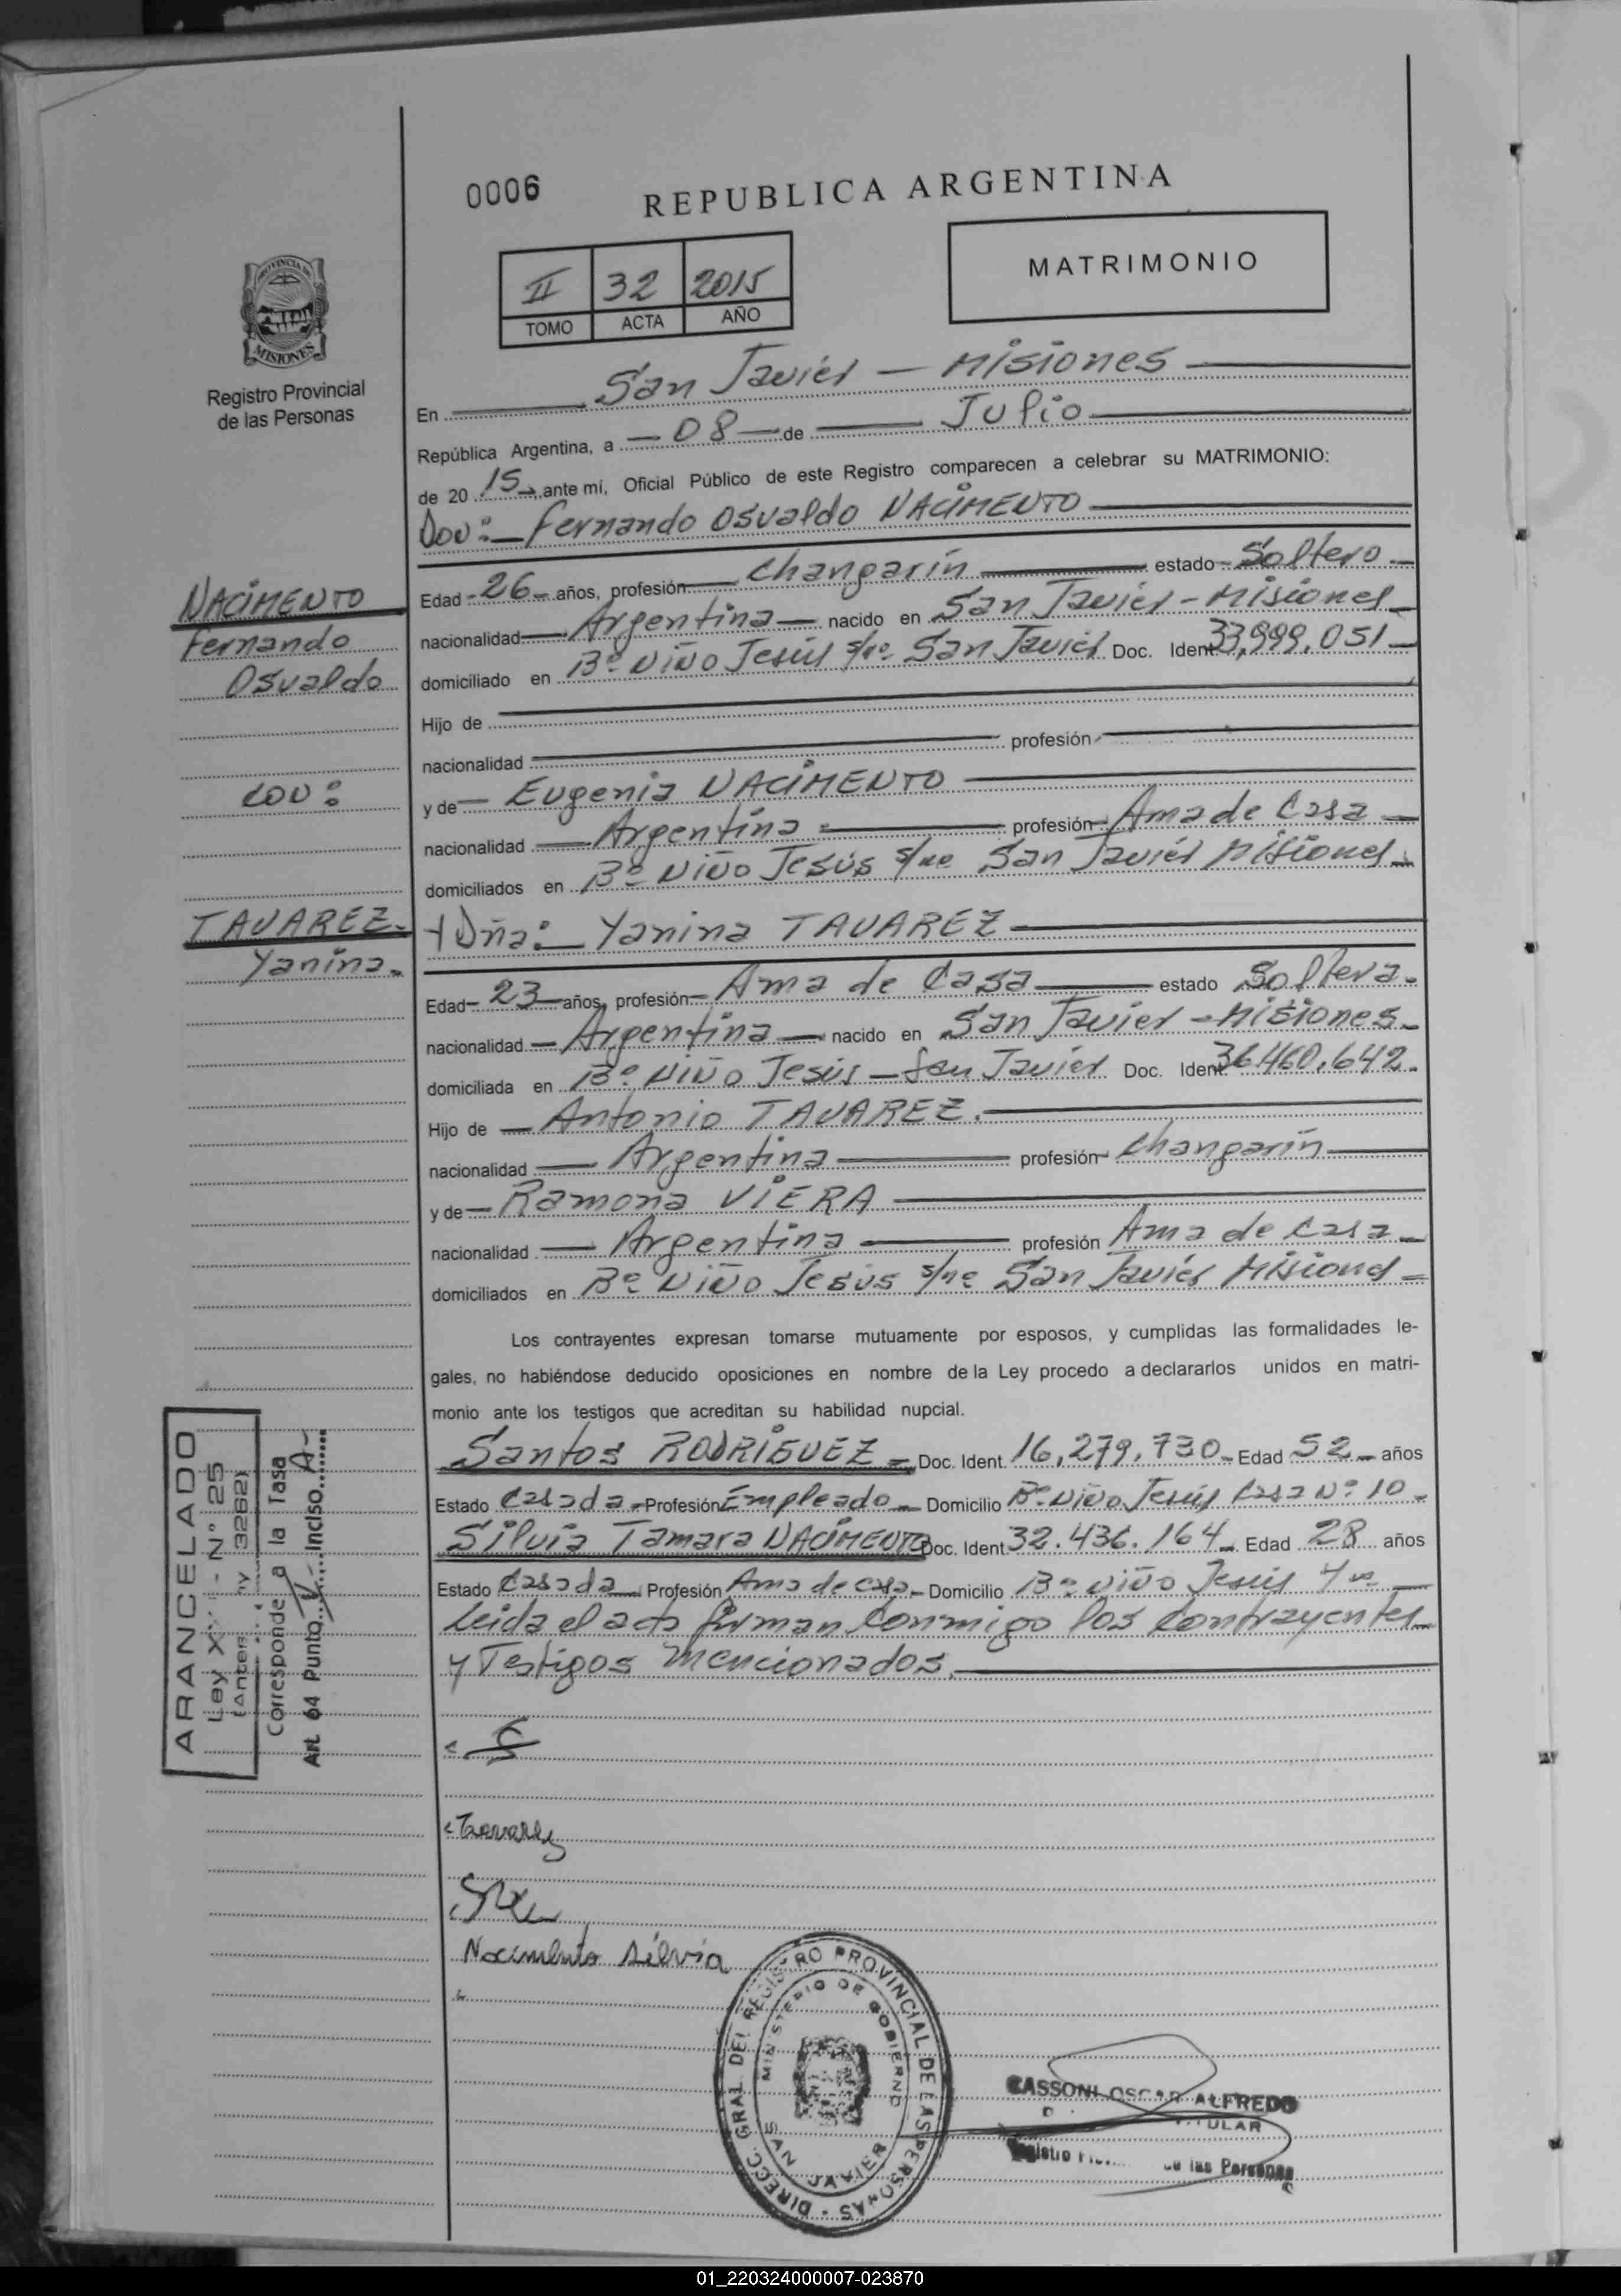 0006
REPUBLICA ARGENTINA
II 32 2015
TOMO ACTA AÑO
MATRIMONIO
PROVINCIA DE
MISIONES
Registro Provincial
de las Personas
En San Javiér - Misiones
República Argentina, a 08 de Julio
de 20 15 ante mí, Oficial Público de este Registro comparecen a celebrar su MATRIMONIO:
Don: Fernando Osvaldo NACIMENTO
NACIMENTO
Fernando
Osvaldo
con:
TAVAREZ
Yanina
Edad 26 años, profesión Changarín estado Soltero
nacionalidad Argentina nacido en San Javiér - Misiones
domiciliado en Bº Niño Jesús s/nº San Javiér Doc. Ident. 33,999,051
Hijo de
nacionalidad profesión
y de Eugenia NACIMENTO
nacionalidad Argentina profesión Ama de Casa
domiciliados en Bº Niño Jesús s/nº San Javiér Misiones
y Dña: Yanina TAVAREZ
Edad 23 años, profesión Ama de Casa estado Soltera.
nacionalidad Argentina nacido en San Javier - Misiones
domiciliada en Bº Niño Jesús - San Javiér Doc. Ident. 36.460.642.
Hijo de Antonio TAVAREZ.
nacionalidad Argentina profesión Changarín
y de Ramona VIERA
nacionalidad Argentina profesión Ama de Casa
domiciliados en Bº Niño Jesús s/nº San Javiér Misiones
Los contrayentes expresan tomarse mutuamente por esposos, y cumplidas las formalidades le-
gales, no habiéndose deducido oposiciones en nombre de la Ley procedo a declararlos unidos en matri-
monio ante los testigos que acreditan su habilidad nupcial.
Santos RODRIGUEZ Doc. Ident. 16,279,730 Edad 52 años
Estado Casada Profesión Empleado Domicilio Bº Niño Jesús Casa Nº 10
Silvia Tamara NACIMENTO Doc. Ident. 32.436.164 Edad 28 años
Estado Casada Profesión Ama de casa Domicilio Bº Niño Jesús s/nº
Leida el acta firman conmigo los contrayentes
y Testigos mencionados.
ARANCELADO
Ley X - Nº 25
(Anter. 3262)
Corresponde a la Tasa
Art. 64 Punto Inciso A
Tavarez
Nacimento Silvia
DIRECC. GRAL. DEL REGISTRO PROVINCIAL DE LAS PERSONAS
MINISTERIO DE GOBIERNO
SAN JAVIER
CASSONI OSCAR ALFREDO
de las Personas
01_220324000007-023870